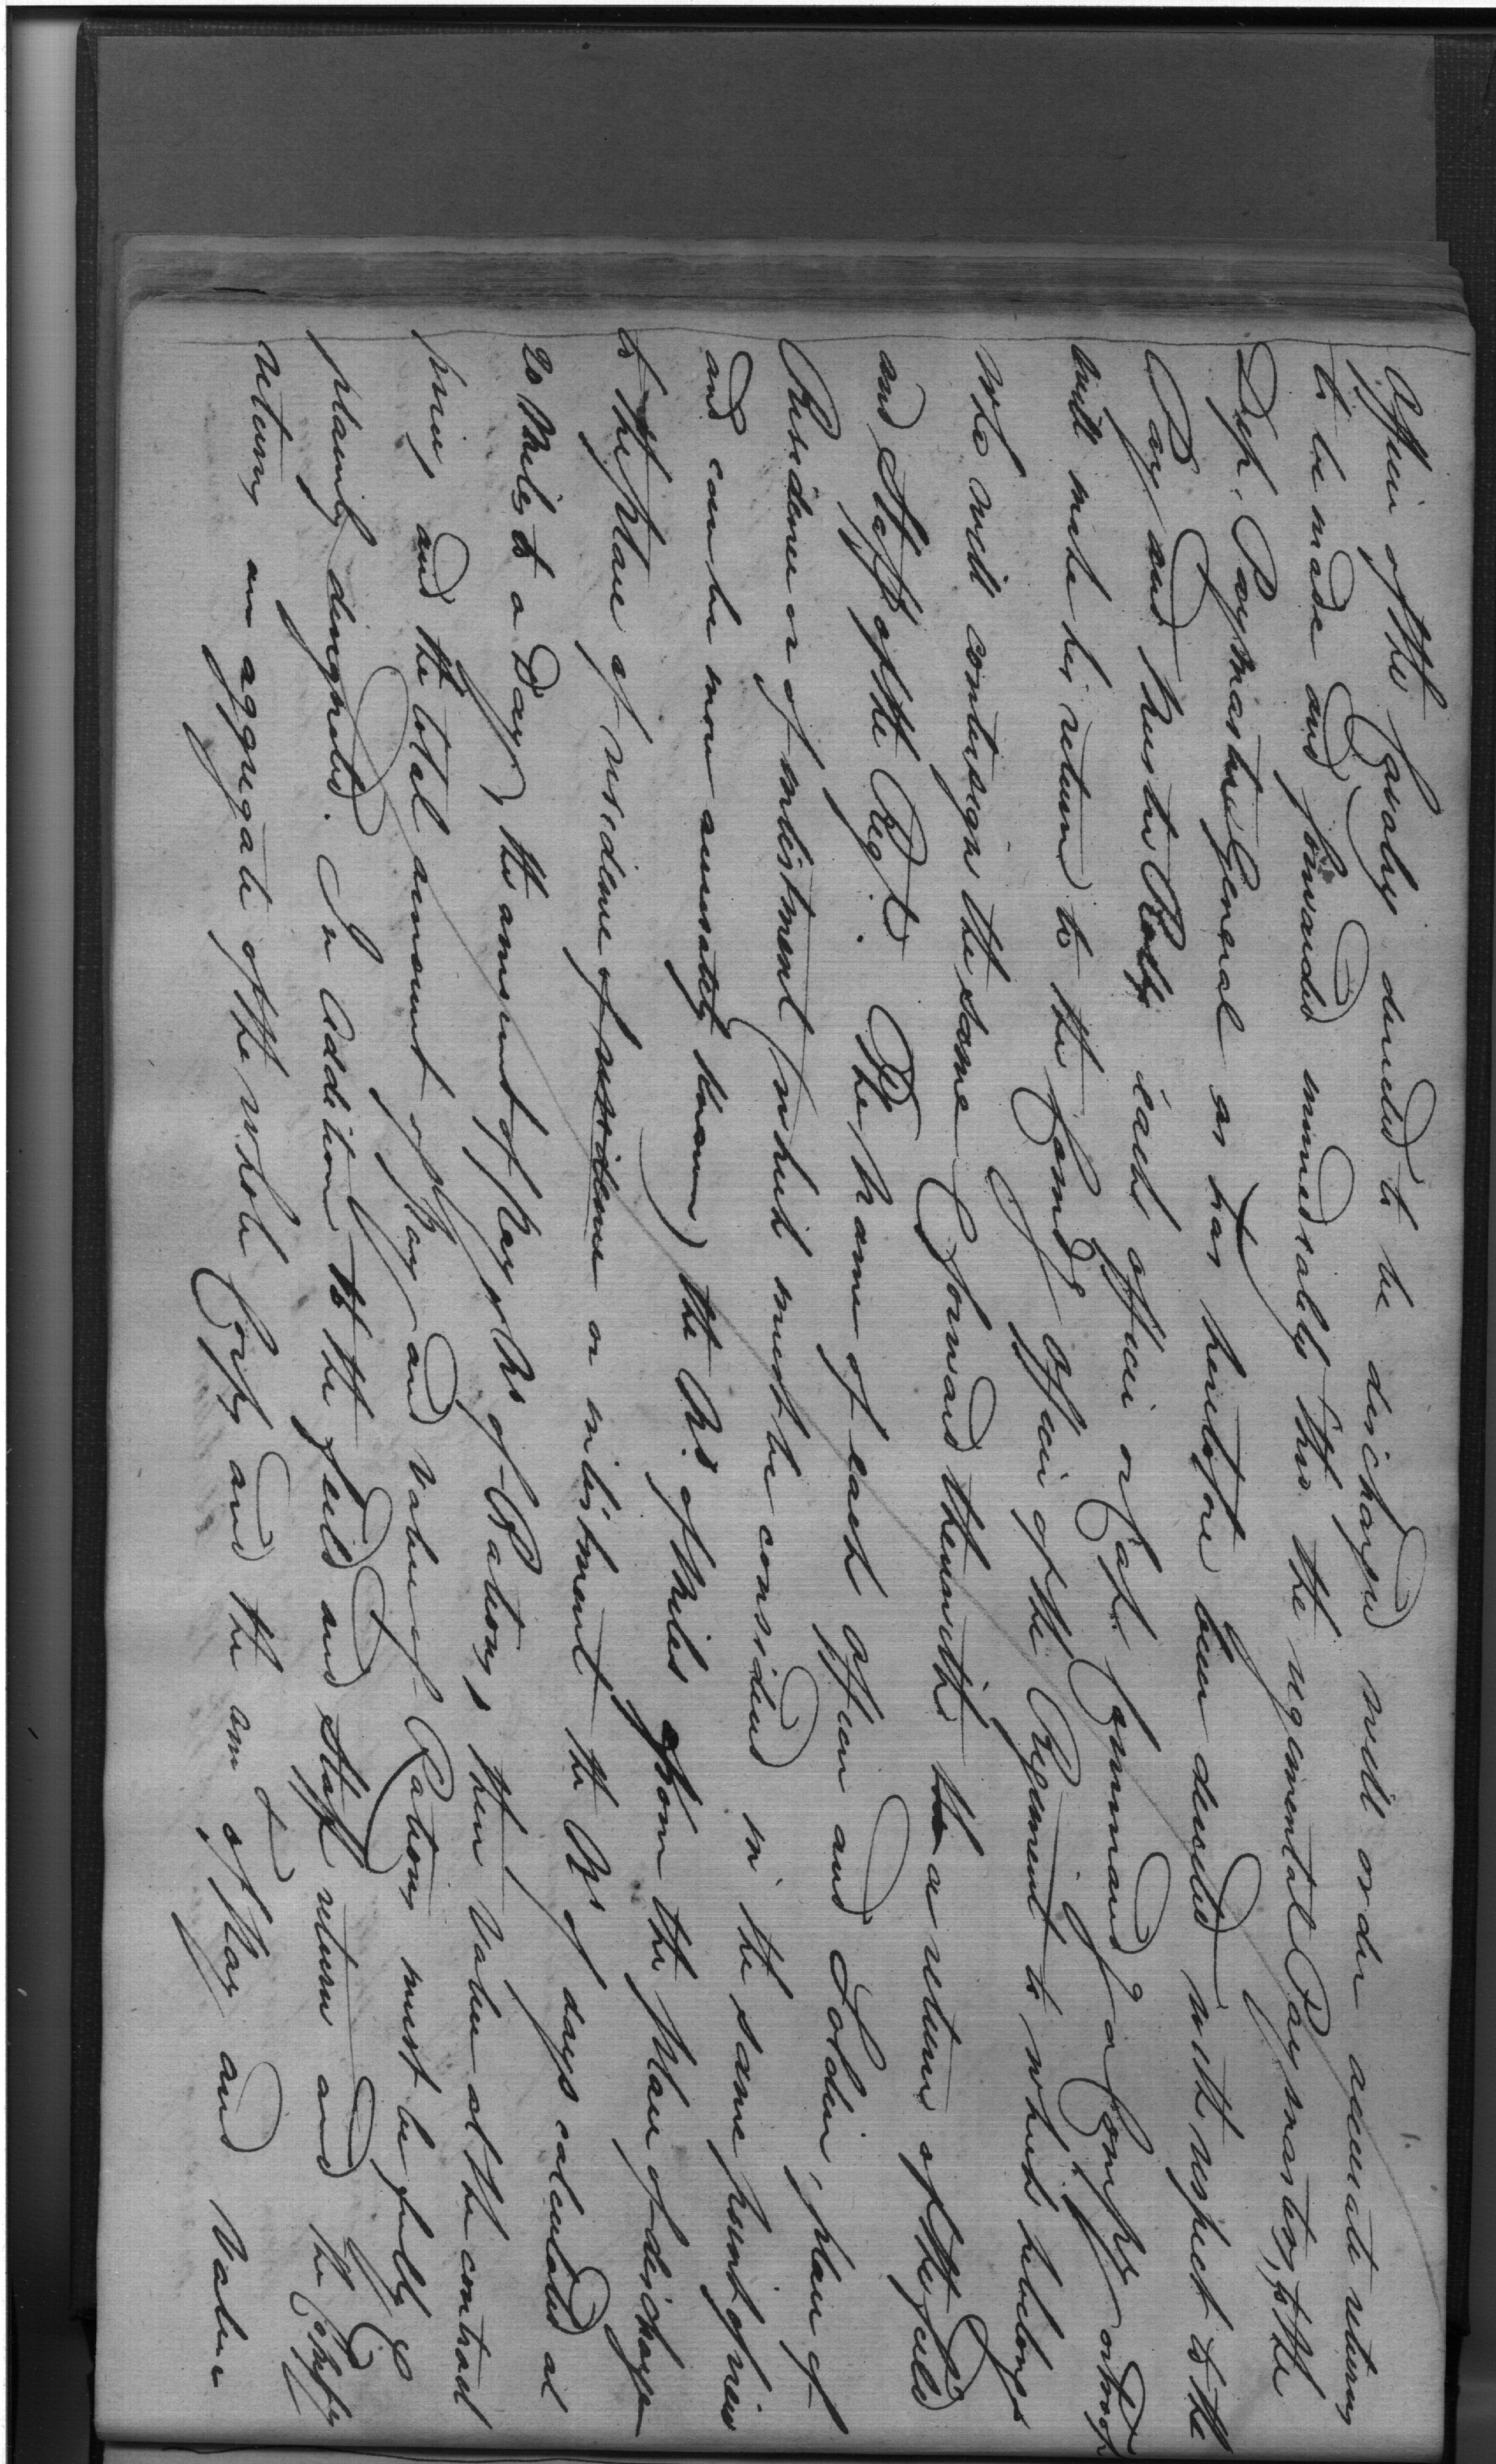 Officer of the Cavalry directed to be discharged will order accurate returns
to be made and forwarded immediately thro the regimental Paymasters, to the
Dep. Paymaster General as has heretofore been directed with respect to the
Pay and Muster Rolls each officer or Capt. Command.g a Comp.y or troop
will make his return to the Comd.g officer of the Regiment to which he belongs
who will countersign the same & forward them with a return of the field
and Staff of the Reg.t. The name of each officer and Soldier, place of
Residence or of enlistment (which must be considered in the same point of view
and can be more accurately known) the No. of miles from the place of discharge
to the place of residence of residence or enlistment the No. of days calculated at
20 Miles to a Day, the amount of pay & No of Rations, their value at the contract
price, and the total amount of pay and value of Rations must be fully &
plainly designated. In addition to the field and Staff return and the Comp.y
returns an aggregate of the whole Corps and the am.t of pay and value